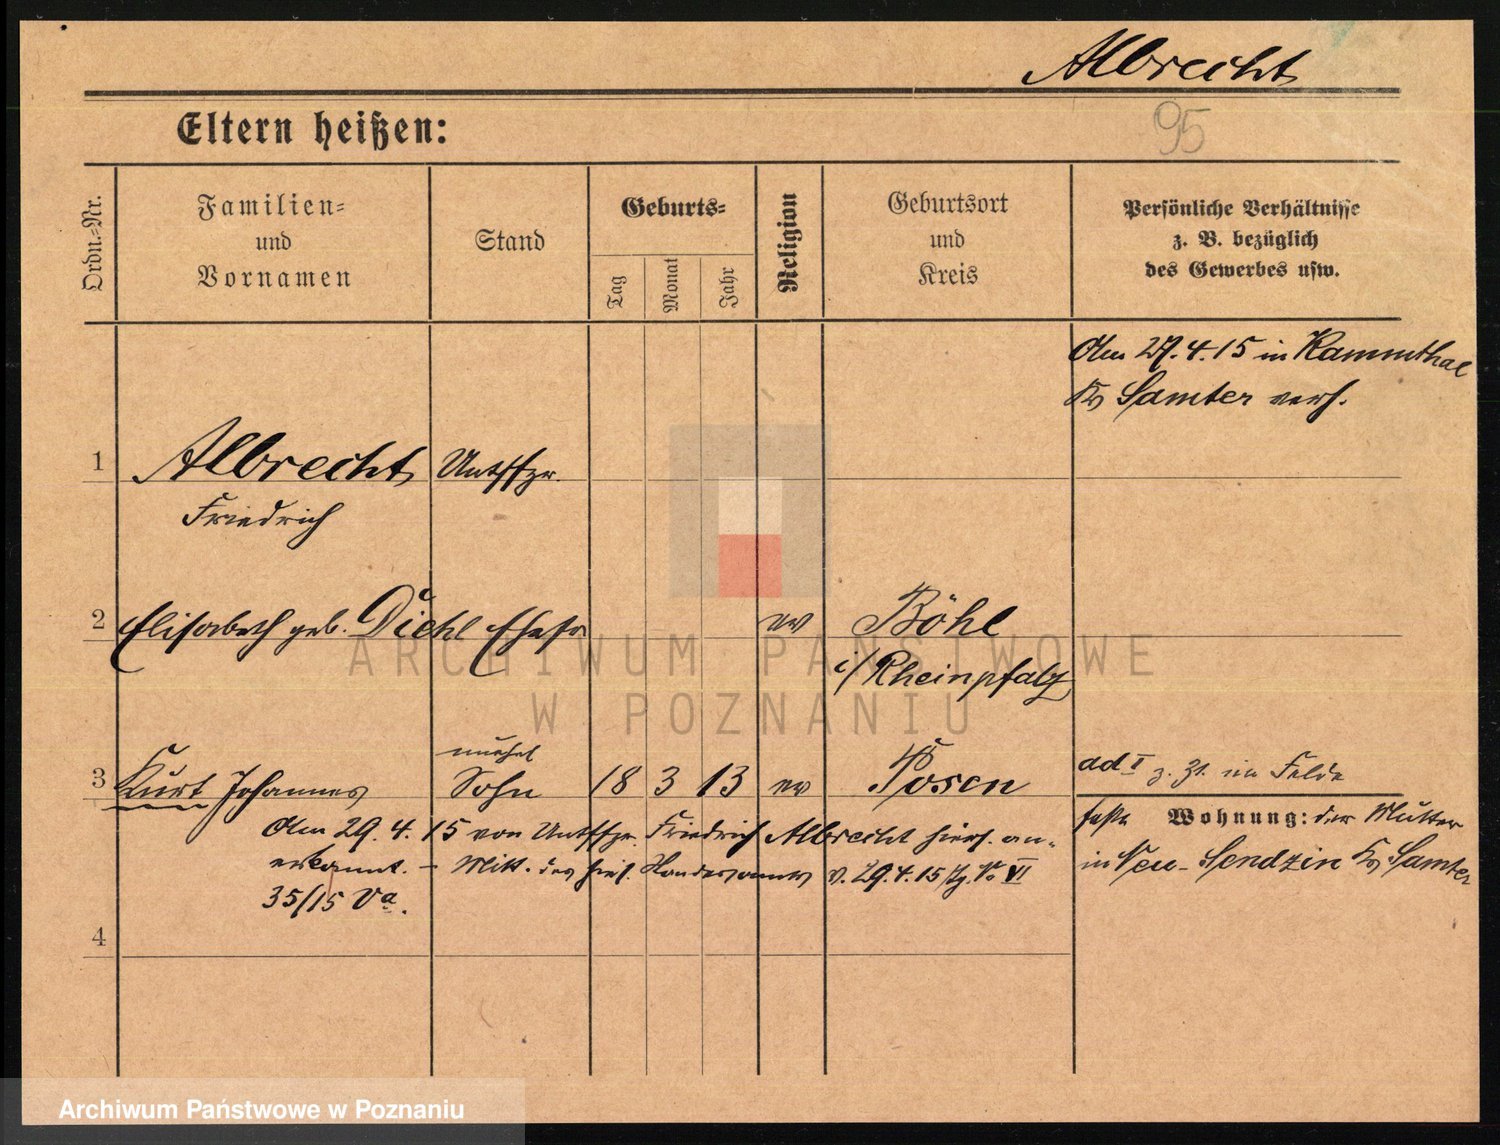 Albrecht
95
Eltern heißen:
Ordn.-Nr.
Familien-
und
Vornamen
Stand
Geburts-
Tag
Monat
Jahr
Religion
Geburtsort
und
Kreis
Persönliche Verhältnisse
z. B. bezüglich
des Gewerbes usw.
Am 27.4.15 in Kammthal
Kr Samter verh.
1
Albrecht
Untffzr.
Friedrich
2
Elisabeth geb. Diehl
Ehefr
ev
Böhl
i/Rheinpfalz
3
Kurt Johannes
unehel
Sohn
18
3
13
ev
Posen
ad I z. Zt. im Felde
Am 29.4.15 von Untffzr. Friedrich Albrecht hiers. an-
erkannt. – Mitt. des hies. Standesamtes v. 29.4.15 No VI
35/15 Va.
Wohnung: der Mutter
in Neu-Sendzin Kr Samter
4
ARCHIWUM PAŃSTWOWE
W POZNANIU
Archiwum Państwowe w Poznaniu